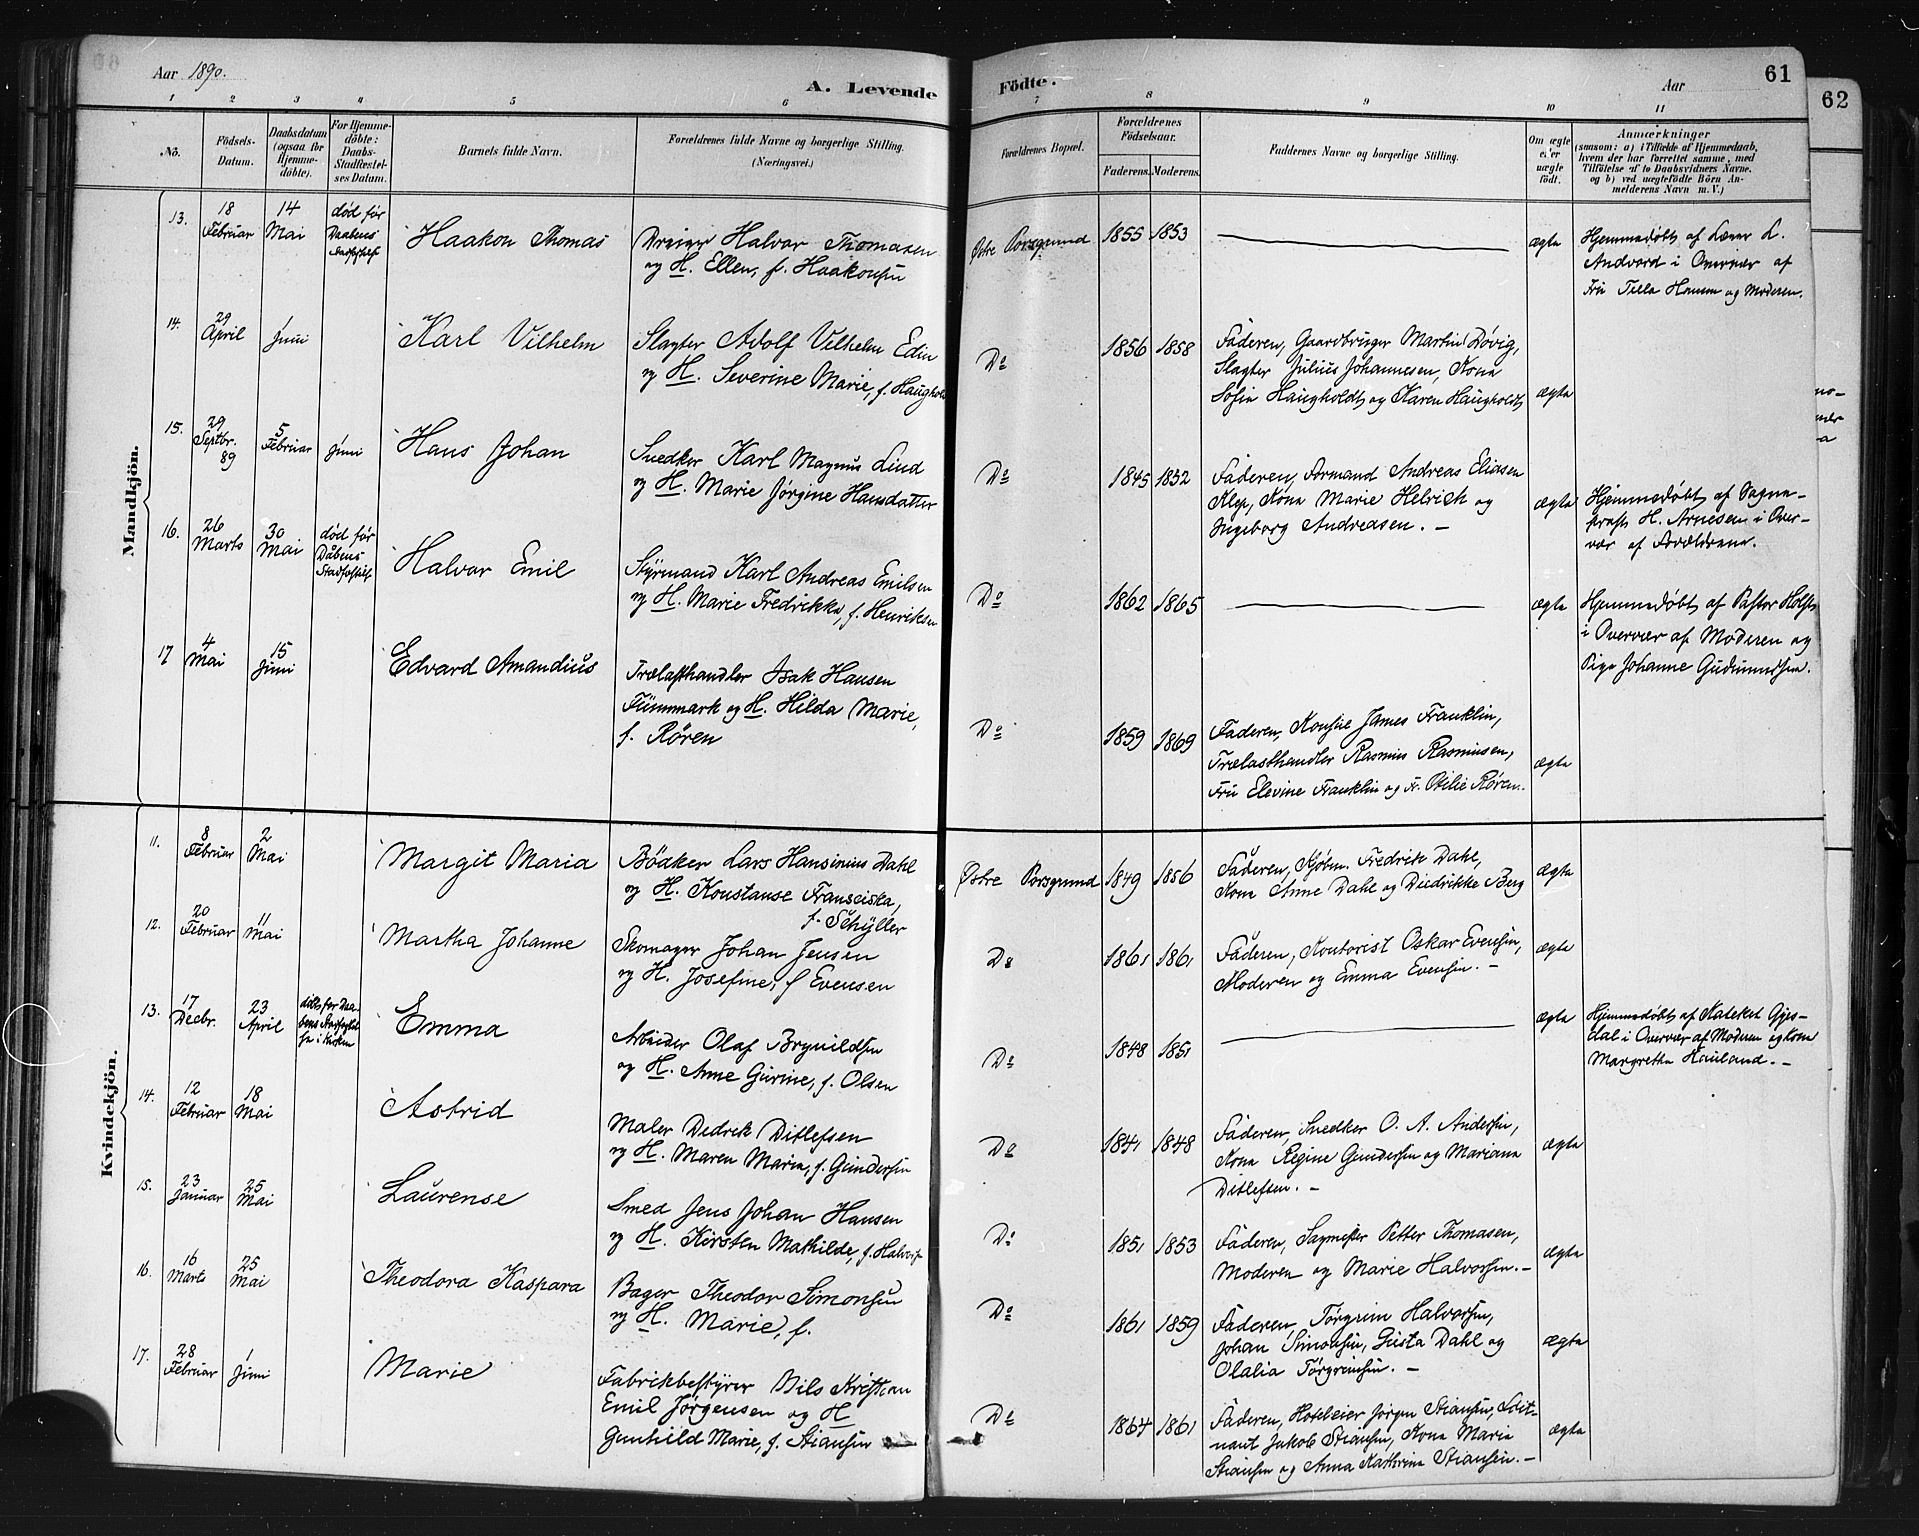 Aar 1890.
A. Levende
Födte.
Aar
61
62
1 2 3 4 5 6 7 8 9 10 11
No.
Födsels-Datum.
Daabsdatum (ogsaa for Hjemme-döbte).
For Hjemme-döbte: Daabs-Stadfæstel-ses Datum.
Barnets fulde Navn.
Forældrenes fulde Navne og borgerlige Stilling.
(Næringsvei.)
Forældrenes Bopæl.
Forældrenes Födselsaar.
Faderens. Moderens.
Faddernes Navne og borgerlige Stilling.
Om ægte eller uægte födt.
Anmærkninger
(saasom: a) i Tilfælde af Hjemmedaab,
hvem der har forrettet samme, med
Tilföielse af to Daabsvidners Navne.
og b) ved uægtefödte Börn An-
melderens Navn m. V.)
Mandkjön.
13. 18 Februar 14 Mai död før Daabens Haakon Thomas
Dreier Halvor Thomasen
og H. Ellen, f. Haakonsen
Østre Porsgrund 1855 1853 ægte
Hjemmedøbt af Læer L.
Andvord i Overvær af
Fru Tilla Hansen og Moderen.
14. 29 April 1 Juni Karl Vilhelm
Slagter Adolf Vilhelm Edin
og H. Severine Marie, f. Haughol
Do 1856 1858
Faderen, Gaardbruger Martin Løvig,
Slagter Julius Johannesen, Kona
Sofie Haugholdt og Karen Haugholdt
ægte
15. 29 Septbr. 89 5 Februar 1 Juni Hans Johan
Snedker Karl Magnus Lind
og H. Marie Jørgine Hansdatter
Do 1845 1852
Faderen, Formand Andreas Eliasen
Klep, Kona Marie Helrich og
Ingeborg Andreasen. –
ægte
Hjemmedøbt af Sogne-
prest H. Arnesen i Over-
vær af Forældrene.
16. 26 Marts 30 Mai død før Dåbens Halvor Emil
Styrmand Karl Andreas Emilsen
og H. Marie Fredrikke, f. Henriksen
Do 1862 1865 ægte
Hjemmedøbt af Pastor Holst
i Overvær af Moderen og
Pige Johanne Gudmundsen.
17 4 Mai 15 Juni Edvard Amandius
Trælasthandler Isak Hansen
Fummark og H. Hilda Marie,
f. Røren
Do 1859 1869
Faderen, Konsul James Franklin,
Trælasthandler Rasmus Rasmusen,
Fru Elevine Franklin og Fr. Otilie Røren.
ægte
Kvindekjön.
11. 8 Februar 2 Mai Margit Maria
Bödker Lars Hansinius Dahl
og H. Konstanse Fransiska,
f. Schyller
Østre Porsgrund 1849 1856
Faderen, Kjøbm. Fredrik Dahl,
Kona Anne Dahl og Diedrikke Berg
ægte
12. 20 Februar 11 Mai Martha Johanne
Skomager Johan Jensen
og H. Josefine, f Evensen
Do 1861 1861
Faderen, Kontorist Oskar Evensen,
Moderen og Emma Evensen. –
ægte
13. 17 Decbr. 23 April Emma
Arbeider Olaf Brynildsen
og H. Anne Gurine, f. Olsen
Do 1848 1851 ægte
Hjemmedøbt af Kateket Gjes-
dal i Overvær af Moderen og kone
Margrethe Hauland. –
14. 12 Februar 18 Mai Astrid
Maler Dedrik Ditlefsen
og H. Maren Maria, f. Gundersen
Do 1841 1848
Faderen, Snedker O. A. Andersen,
Kona Regine Gundersen og Mariana
Ditlefsen. –
ægte
15. 23 Januar 25 Mai Laurense
Smed Jens Johan Hansen
og H. Kirsten Mathilde, f. Halvors
Do 1851 1853
Faderen, Sagmester Petter Thomasen,
Moderen og Marie Halvorsen. –
ægte
16. 16 Marts 25 Mai Theodora Kaspara
Bager Theodor Simonsen
og H. Marie, f.
Do 1861 1859
Faderen, Torgrim Halvorsen,
Johan Simonsen, Gusta Dahl og
Olalia Torgrimsen. –
ægte
17. 28 Februar 1 Juni Marie
Fabrikbestyrer Nils Kristian
Emil Jørgensen og H
Gunhild Marie, f. Stiansen
Do 1864 1861
Faderen, Hoteleier Jørgen Stiansen, Løit-
nant Jakob Stiansen, Kona Maria
Stiansen og Anna Kathrine Stiansen. –
ægte